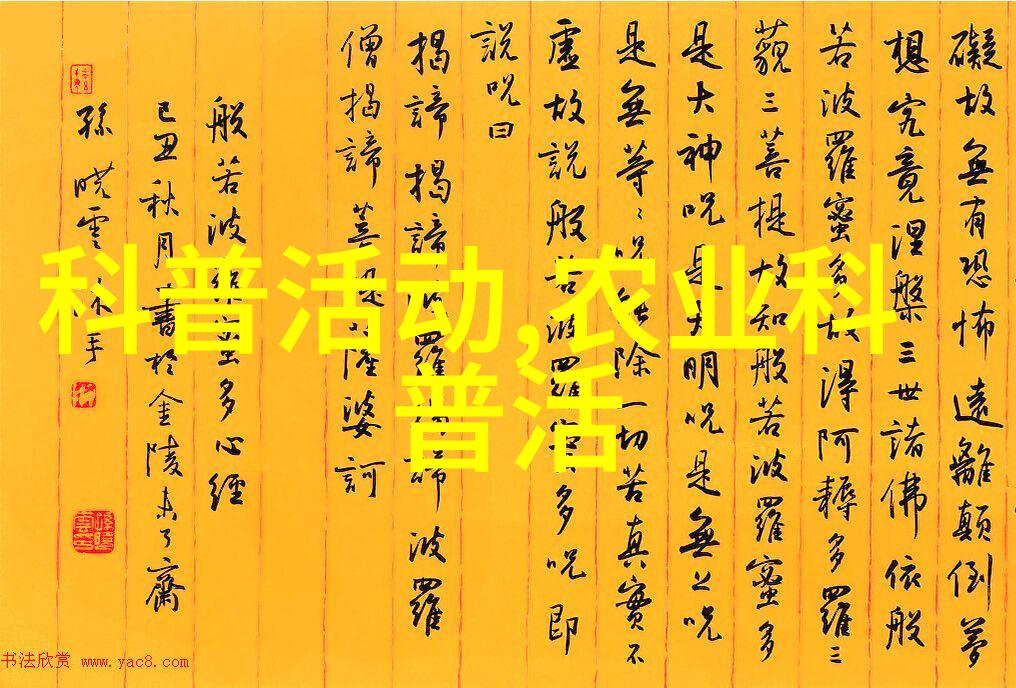 礙故無有恐怖遠離顛倒夢
想究竟涅槃三世諸佛依般
若波羅蜜多故得阿耨多羅三
藐三菩提故知般若波羅蜜多
是大神咒是大明咒是無上咒
是無等〻咒能除一切苦真實不
虛故說般若波羅蜜多咒即
說咒曰
揭諦揭諦波羅揭諦波羅
僧揭諦菩提薩婆訶
般若波羅蜜多心經
己丑秋月書於金陵未了齋
孫曉雲沐手
科普活动,农业科
普活
书法欣赏 www.yac8.com